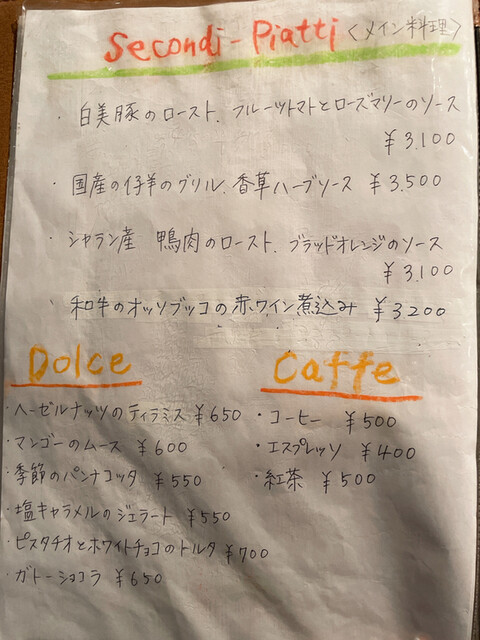 Secondi-Piatti <メイン料理>
・白美豚のロースト、フルーツトマトとローズマリーのソース
¥3,100
・国産の仔羊のグリル、香草ハーブソース ¥3,500
・シャラン産 鴨肉のロースト、ブラッドオレンジのソース
¥3,100
・和牛のオッソブッコの赤ワイン煮込み ¥3200
Dolce
・ヘーゼルナッツのティラミス ¥650
・マンゴーのムース ¥600
・季節のパンナコッタ ¥550
・塩キャラメルのジェラート ¥550
・ピスタチオとホワイトチョコのトルタ ¥700
・ガトーショコラ ¥650
Caffe
・コーヒー ¥500
・エスプレッソ ¥400
・紅茶 ¥500